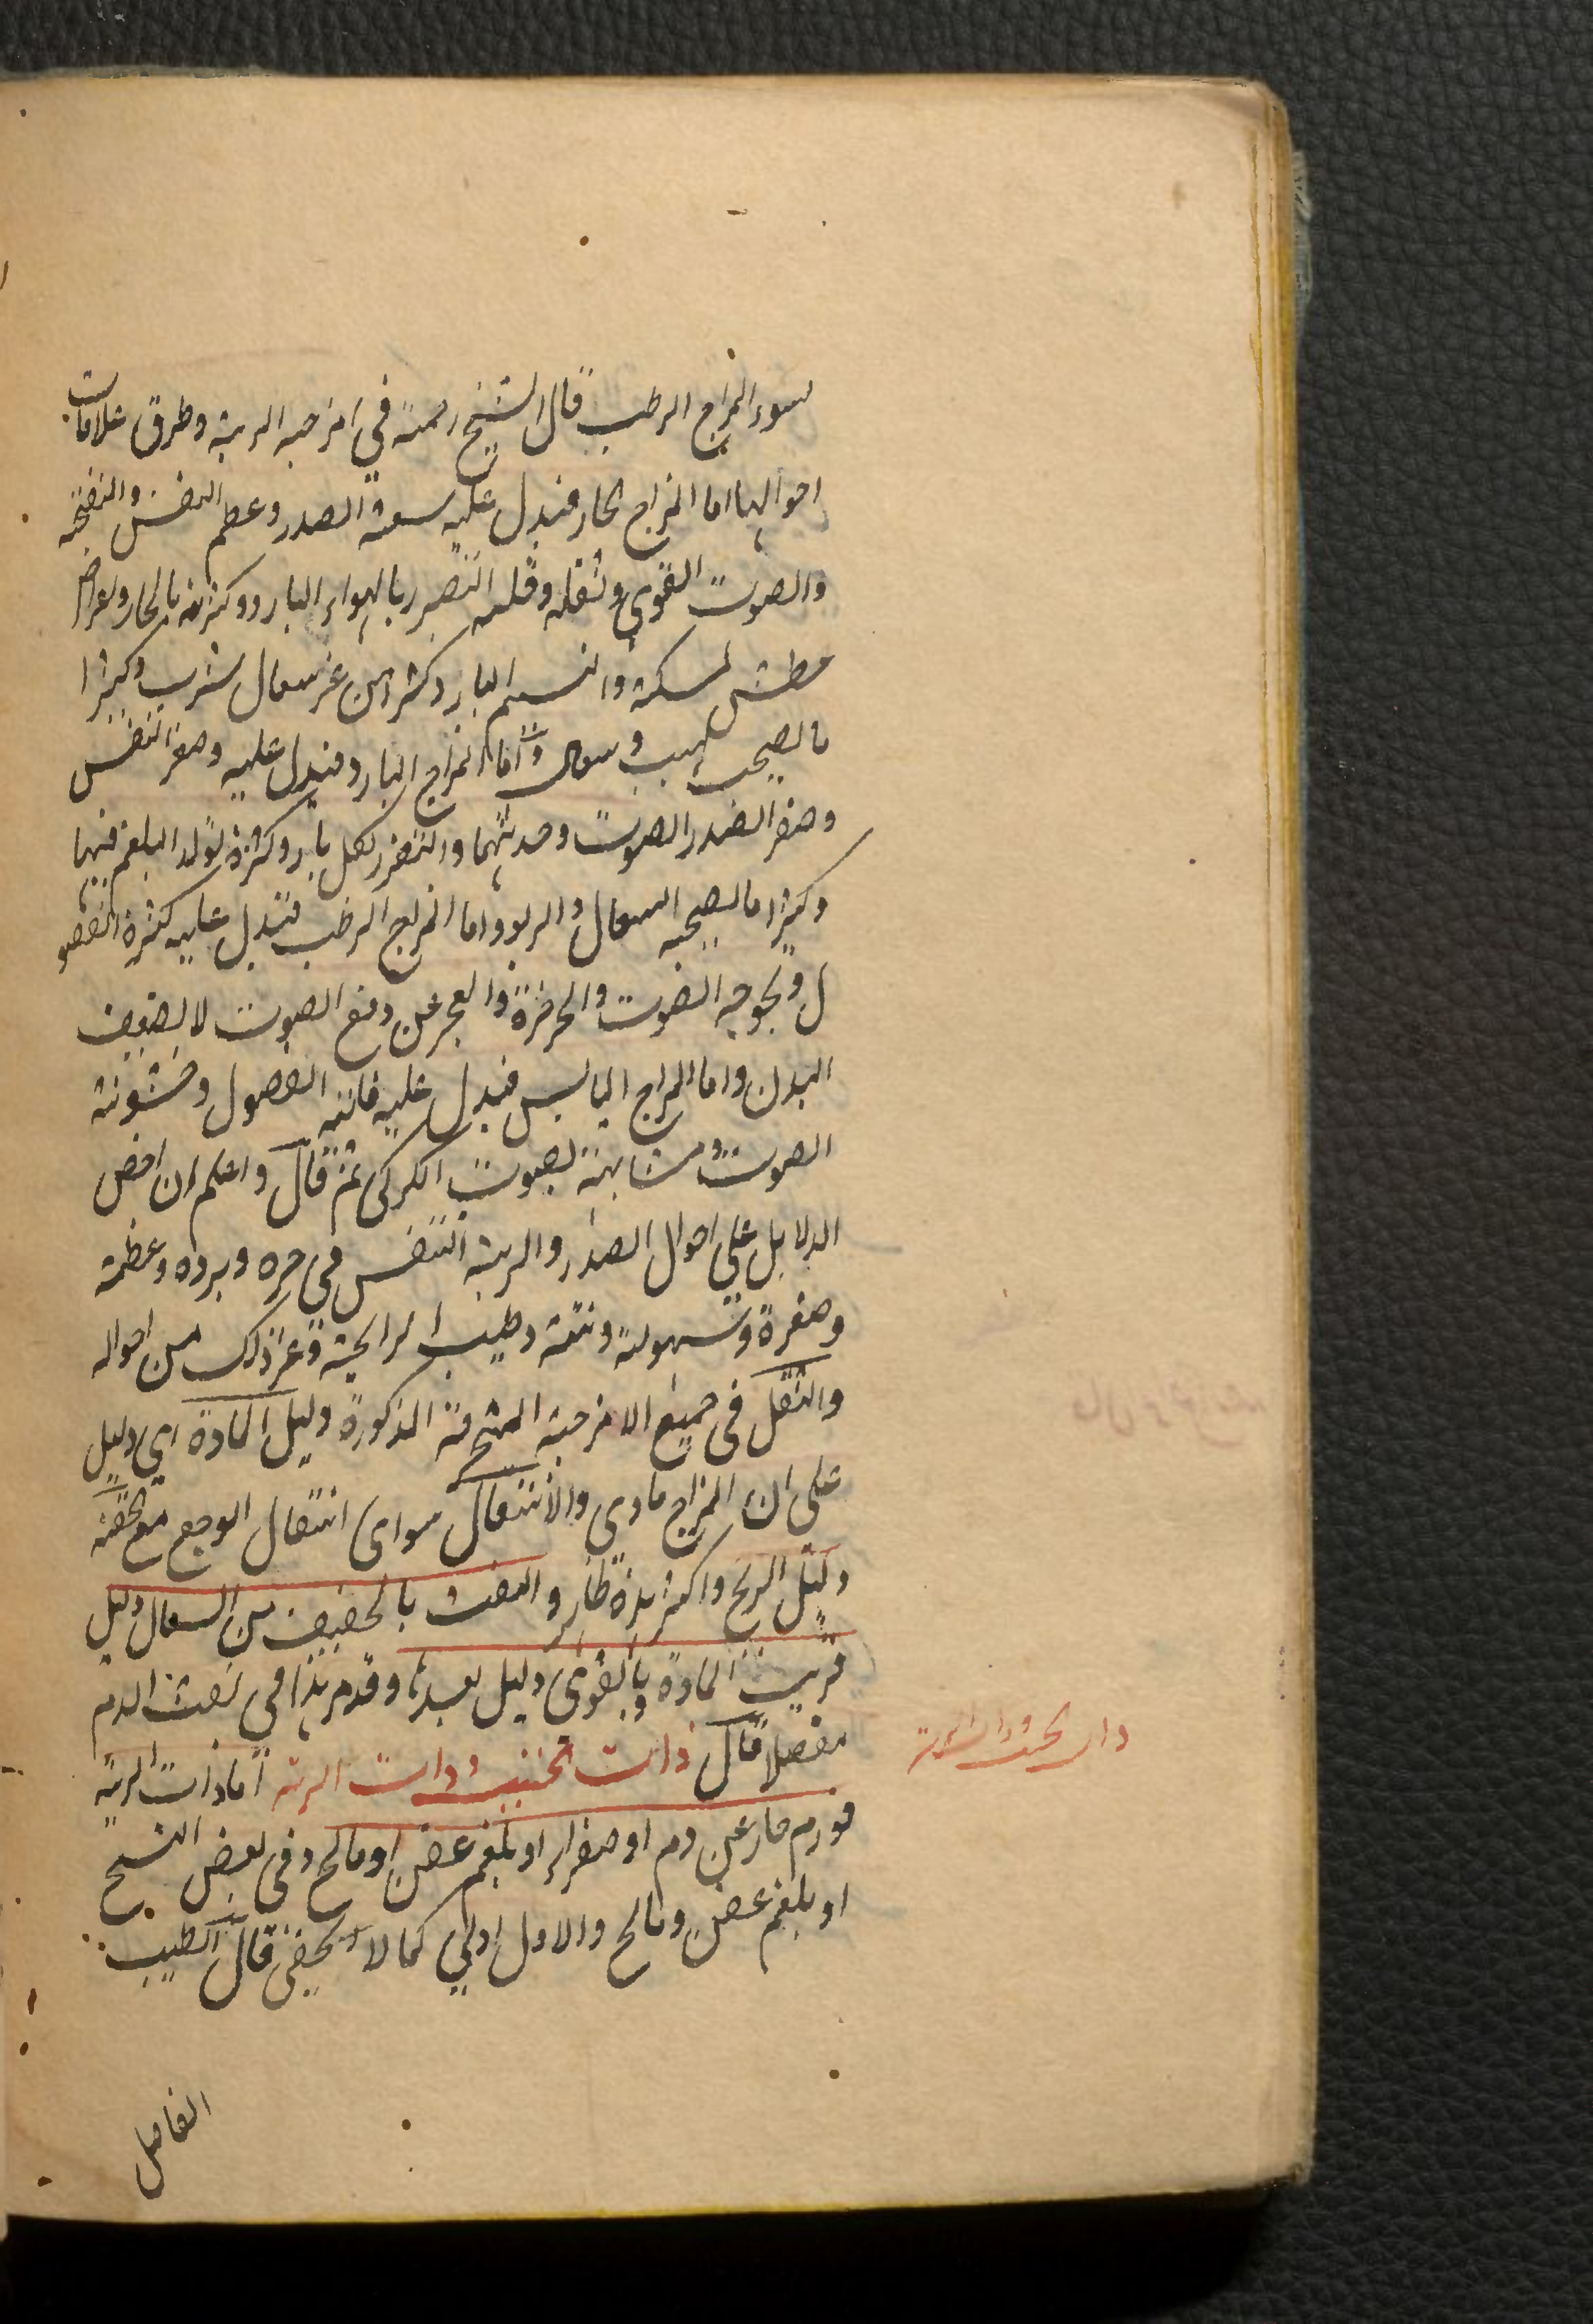 لسوء المزاج الرطب قال الشيخ رحمة في امزجه الرية وطرق علامات
احوالها اما المزاج الحار فيدل عليه سعة الصدر وعظم النفس والنفخه
والصوت القوي وثقله وقلة التضرر بالهواء البارد وكثرته بالحار ولعراض
عطش لسكنه والنسيم البارد كثرا من غير سعال شرب وكثيرا
ما لصحبه لهيب وسعال واما المزاج البارد فيدل عليه وصغر النفس
وصغر الصدر الصوت وحدتهما والتضرر لكل بارد وكثرة تولد البلغم فيها
وكثيرا ما لصحبه السعال والربو واما المزاج الرطب فتدل عليه كثرة الفضو
ل وبحوحه الصوت والخرخرة والعجز عن رفع الصوت لا لضعف
البدن واما المزاج اليابس فيدل عليه فانيه الفضول وخشونة
الصوت ومشابهته لصوت الكركي ثم قال واعلم ان اخص
الدلايل علي احوال الصدر والرية التنفس في حره وبرده وعظمه
وصغرة وسهولته ونتنه وطيب الرايحة وغر ذلك من احواله
والثقل في جميع الامزجة المنحرفة المذكورة دليل المادة اي دليل
علي ان المزاج مادي والانتقال سواي انتقال الوجع مع الخفه
دليل الريح واكثر هذه ظاهر والنفث بالخفيف من السعال دليل
قريب المادة وبالقوي دليل لعبدها وقدمر هذا في نفث الدم
مفصلا قال ذات الجنب وذات الرية اما ذات الرية
فورم حار عن دم او صفراء او بلغم عفن او مالح وفي بعض النسخ
او بلغم عفن ومالح والاول اولي كما لا يخفي قال الطيب
الفاضل
ذات الجنب وذات الرية